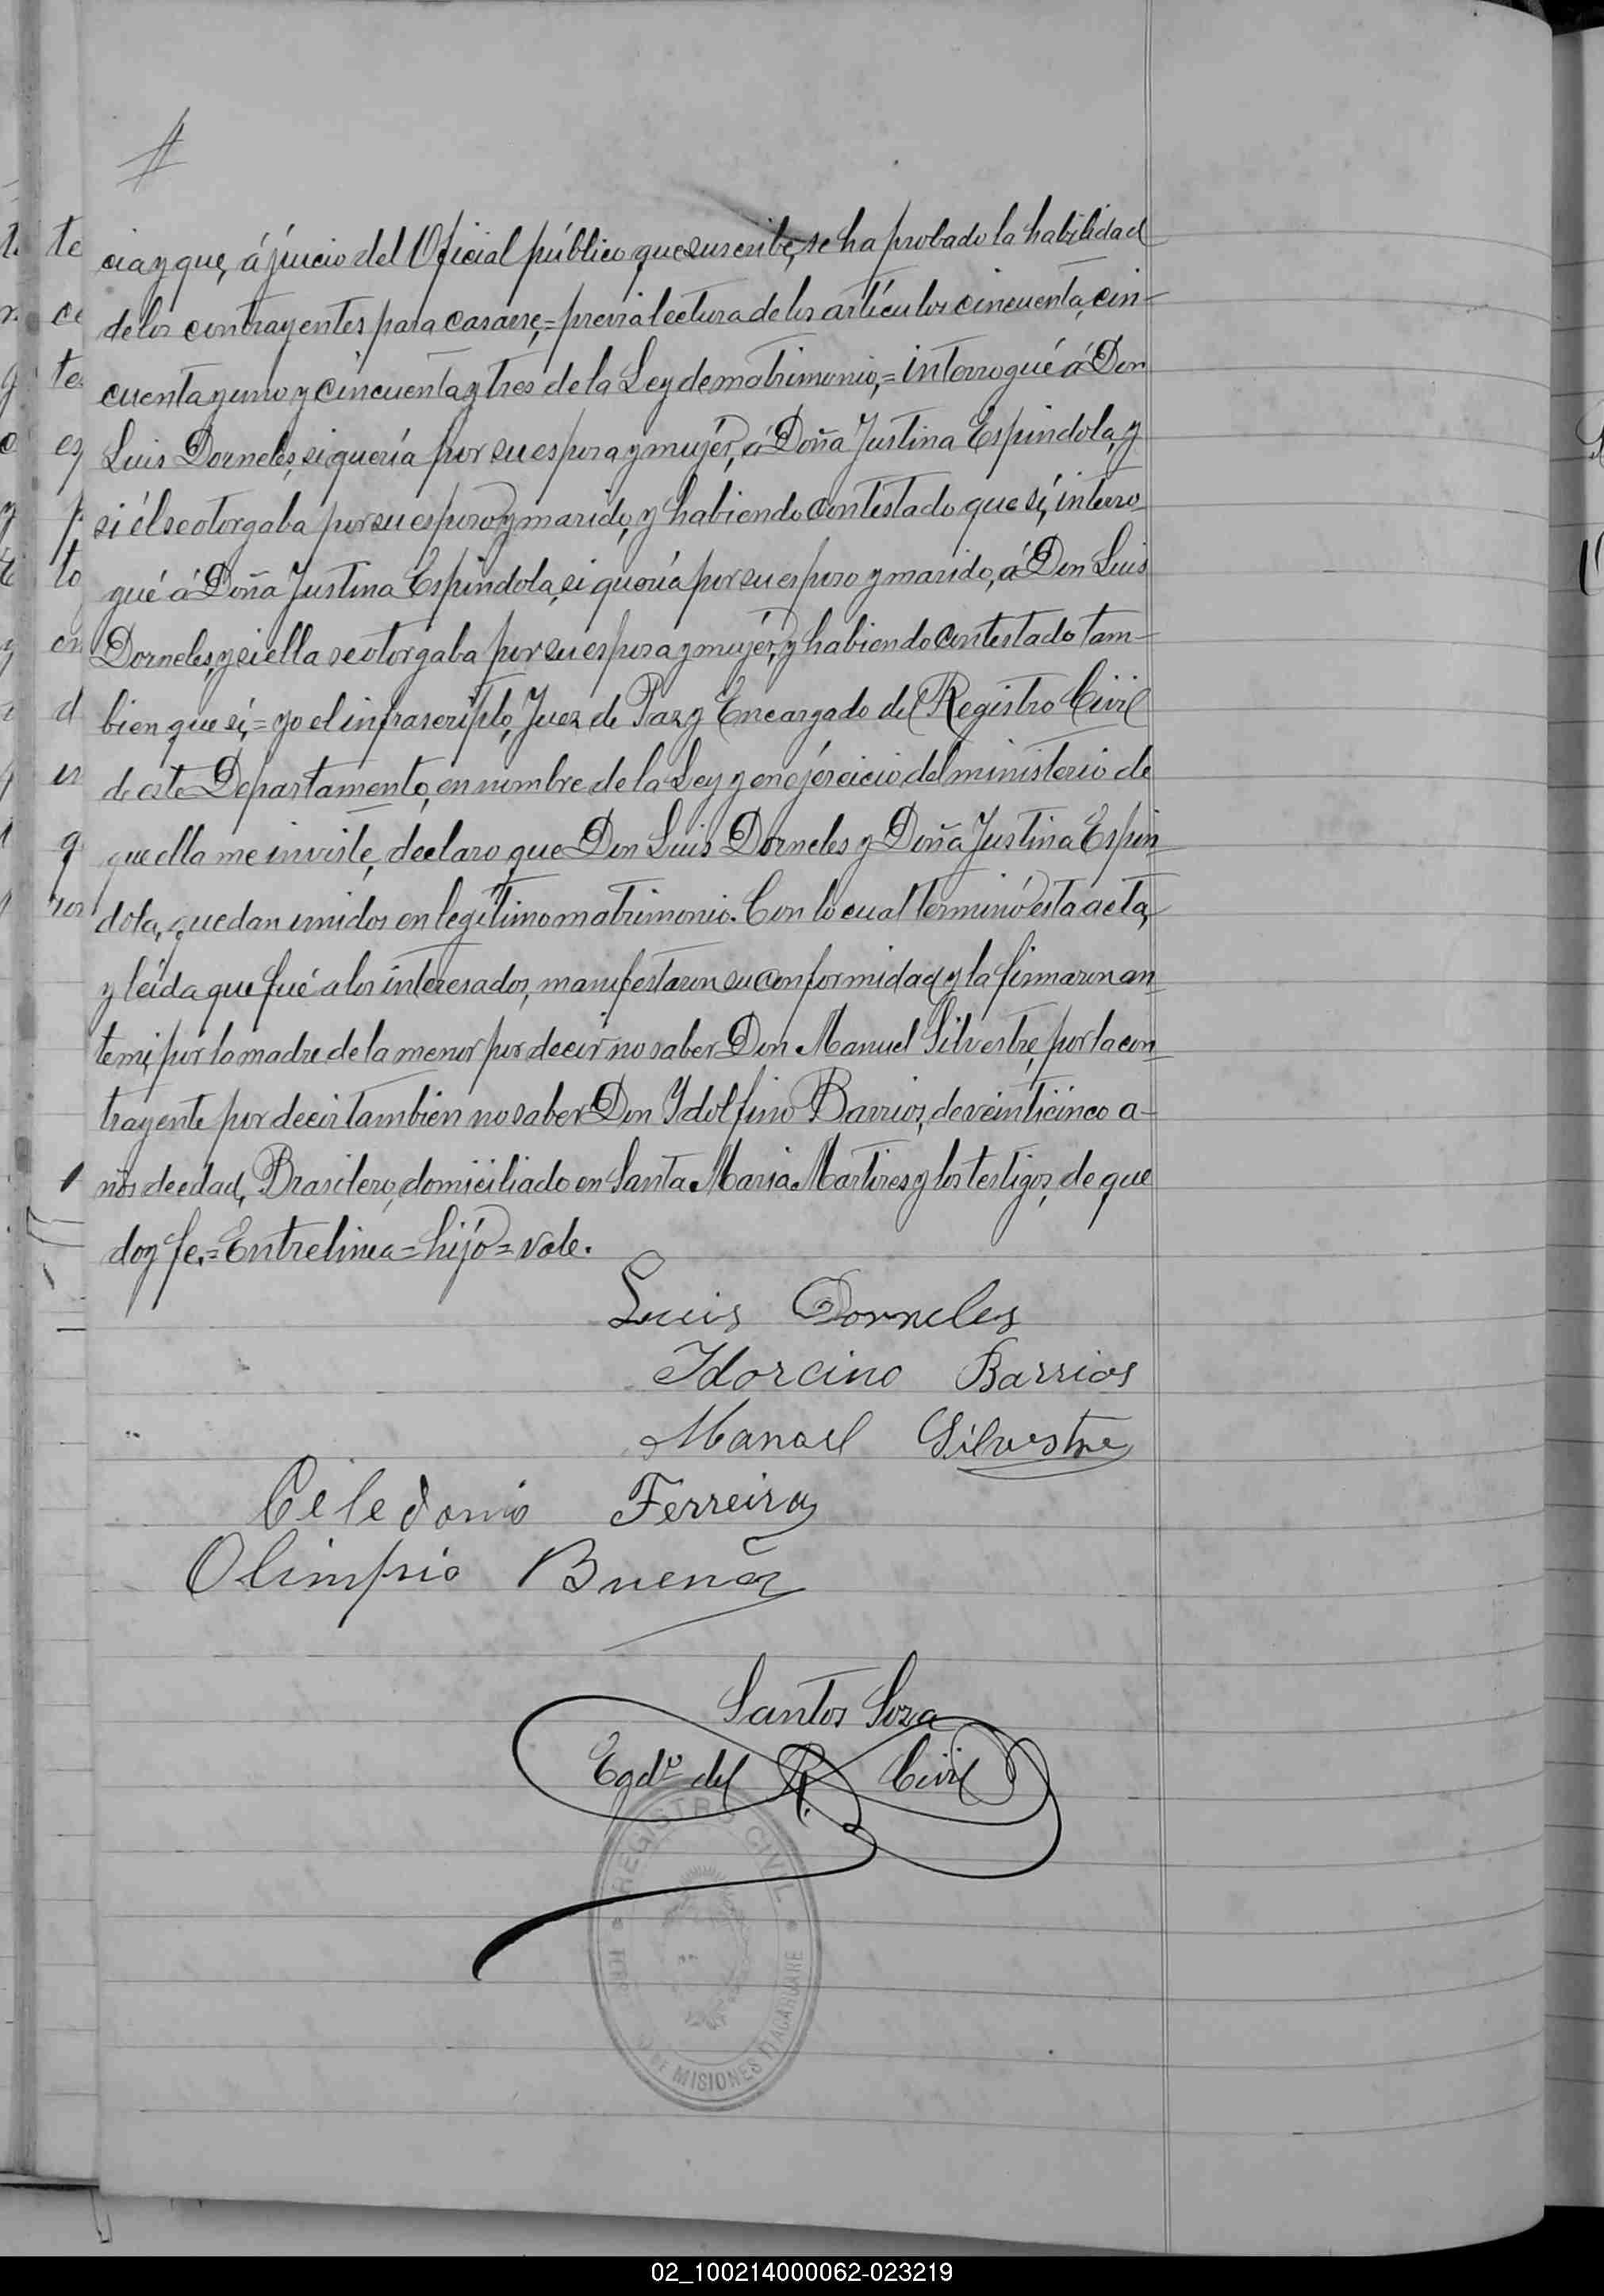 cia y que, á júicio del Oficial público que suscribe, se ha probado la habilidad
de los contrayentes para casarse, = previa lectura de los artículos cincuenta, cin-
cuenta y uno y cincuenta y tres de la Ley de matrimonio, = interrogué á Don
Luis Dorneles, si quería por su esposa y mujér, á Doña Justina Espindola, y
si él se otorgaba por su esposo y marido, y habiendo contestado que sí, interro-
gué á Doña Justina Espindola, si quería por su esposo y marido, á Don Luis
Dorneles, y si ella se otorgaba por su esposa y mujér, y habiendo contestado tam-
bien que sí, = yo el infrascripto, Juez de Paz y Encargado del Registro Civil
de este Departamento, en nombre de la Ley y en ejércicio del ministerio de
que ella me inviste, declaro que Don Luis Dorneles y Doña Justina Espin-
dola, quedan unidos en legítimo matrimonio. Con lo cual terminó esta acta,
y leída que fué a los interesados, manifestaron su conformidad y la firmaron an-
te mi, por la madre de la menor por decir no saber Don Manuel Silvestre, por la con-
trayente por decir tambien no saber Don Ydolfino Barrios, de veinticinco a-
ños de edad, Brasilero, domiciliado en Santa Maria Martires y los testigos, de que
doy fe. = Entrelinea = hijó = vale.
Luis Dorneles
Idorcino Barrios
Manoel Silvestre
Celedonio Ferreira
Olimpio Buena
Santos Soza
Egdo. del R. Civil
REGISTRO CIVIL
DE MISIONES ITACARUARE
02_100214000062-023219